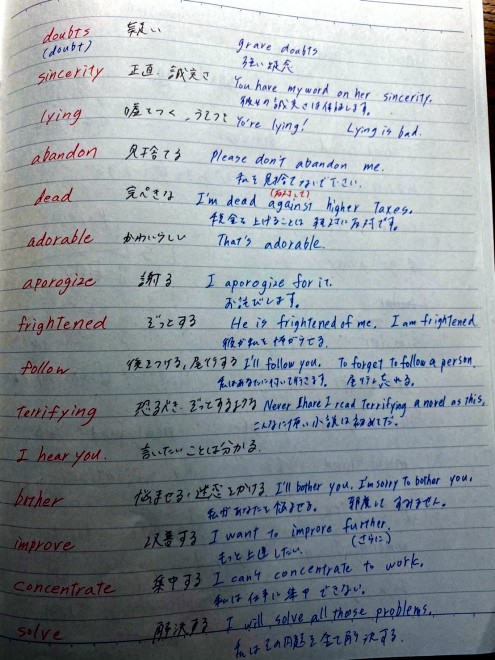 doubts 疑い grave doubts
(doubt) 強い疑念
sincerity 正直、誠実さ You have my word on her sincerity.
彼女の誠実さは保証します。
lying 嘘をつく、うそつき You're lying! Lying is bad.
abandon 見捨てる Please don't abandon me.
私を見捨てないで下さい。
dead 完ぺきな I'm dead against higher taxes.
(反対して)
税金を上げることは絶対に反対です。
adorable かわいらしい That's adorable.
aporogize 謝る I aporogize for it.
お詫びします。
frightened ぞっとする He is frightened of me. I am frightened
彼が私を怖がってる。
follow 後をつける、尾行する I'll follow you. To forget to follow a person.
私はあなたに付いて行きます。 尾行を忘れる。
terrifying 恐るべき、ぞっとするような Never I have I read terrifying a novel as this.
こんなに怖い小説は初めてだ。
I hear you. 言いたいことは分かる。
bother 悩ませる、迷惑をかける I'll bother you. I'm sorry to bother you.
私があなたを悩ませる。 邪魔してすみません。
improve 改善する I want to improve further.
もっと上達したい。 (さらに)
concentrate 集中する I can't concentrate to work.
私は仕事に集中できない。
solve 解決する I will solve all those problems.
私はその問題を全て解決する。